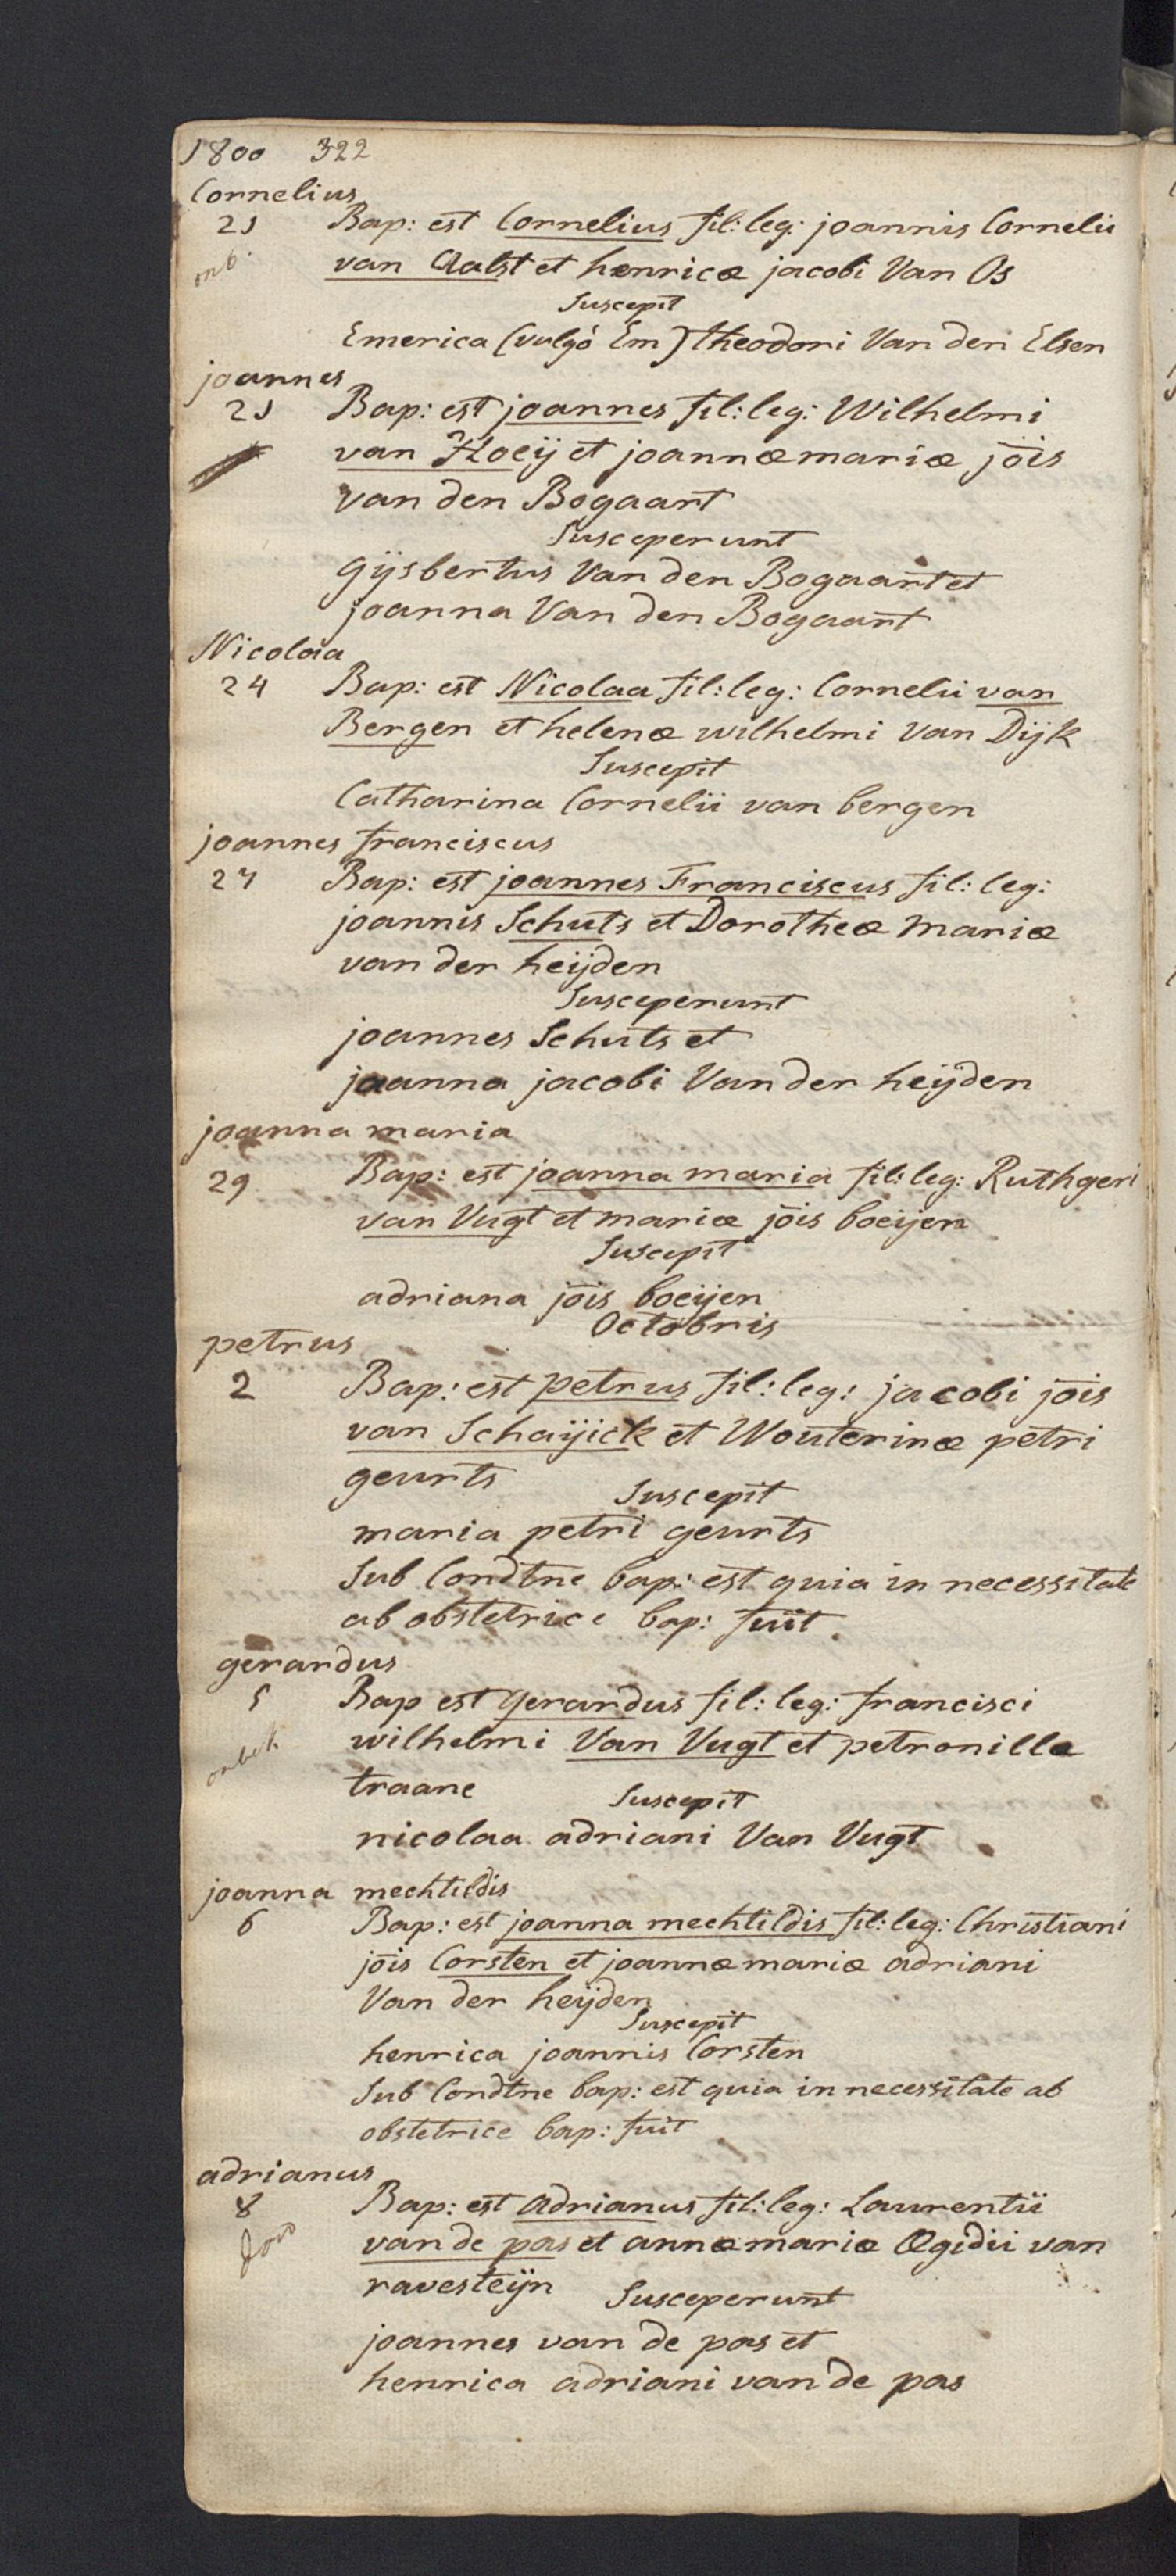 1800 322
Cornelius
21 Bap: est Cornelius fil: leg: joannis Cornelii
onb. van Aalst et henricæ jacobi Van Os
Suscepit
Emerica (vulgò Em) theodori Van den Elsen
joannes
21 Bap: est joannes fil: leg: Wilhelmi
van Hoeij et joannæ mariæ jōis
van den Bogaart
Susceperunt
gijsbertus Van den Bogaart et
joanna Van den Bogaart
Nicolaa
24 Bap: est Nicolaa fil: leg: Cornelii van
Bergen et helenæ wilhelmi Van Dijk
Suscepit
Catharina Cornelii van bergen
joannes franciscus
27 Bap: est joannes Franciscus fil: leg:
joannis Schuts et Dorotheæ Mariæ
van der heijden
Susceperunt
joannes Schuts et
joanna jacobi Van der heijden
joanna maria
29 Bap: est joanna maria fil: leg: Ruthgeri
van Vugt et mariæ jōis boeijen
Suscepit
adriana jōis boeijen
Octobris
petrus
2 Bap: est petrus fil: leg: jacobi jōis
van Schaijick et Wouterinæ petri
geurts Suscepit
maria petri geurts
Sub Condtne bap: est quia in necessitate
ab obstetrice bap: fuit
gerardus
5 Bap est gerardus fil: leg: francisci
onbek wilhelmi Van Vugt et petronilla
traane Suscepit
nicolaa adriani Van Vugt
joanna mechtildis
6 Bap: est joanna mechtildis fil: leg: Christiani
jōis Corsten et joannæ mariæ adriani
Van der heijden
Suscepit
henrica joannis Corsten
Sub Condtne bap: est quia in necessitate ab
obstetrice bap: fuit
adrianus
8 Bap: est adrianus fil: leg: Laurentii
van de pas et annæ mariæ Ægidii van
ravesteijn Susceperunt
joannes van de pas et
henrica adriani van de pas